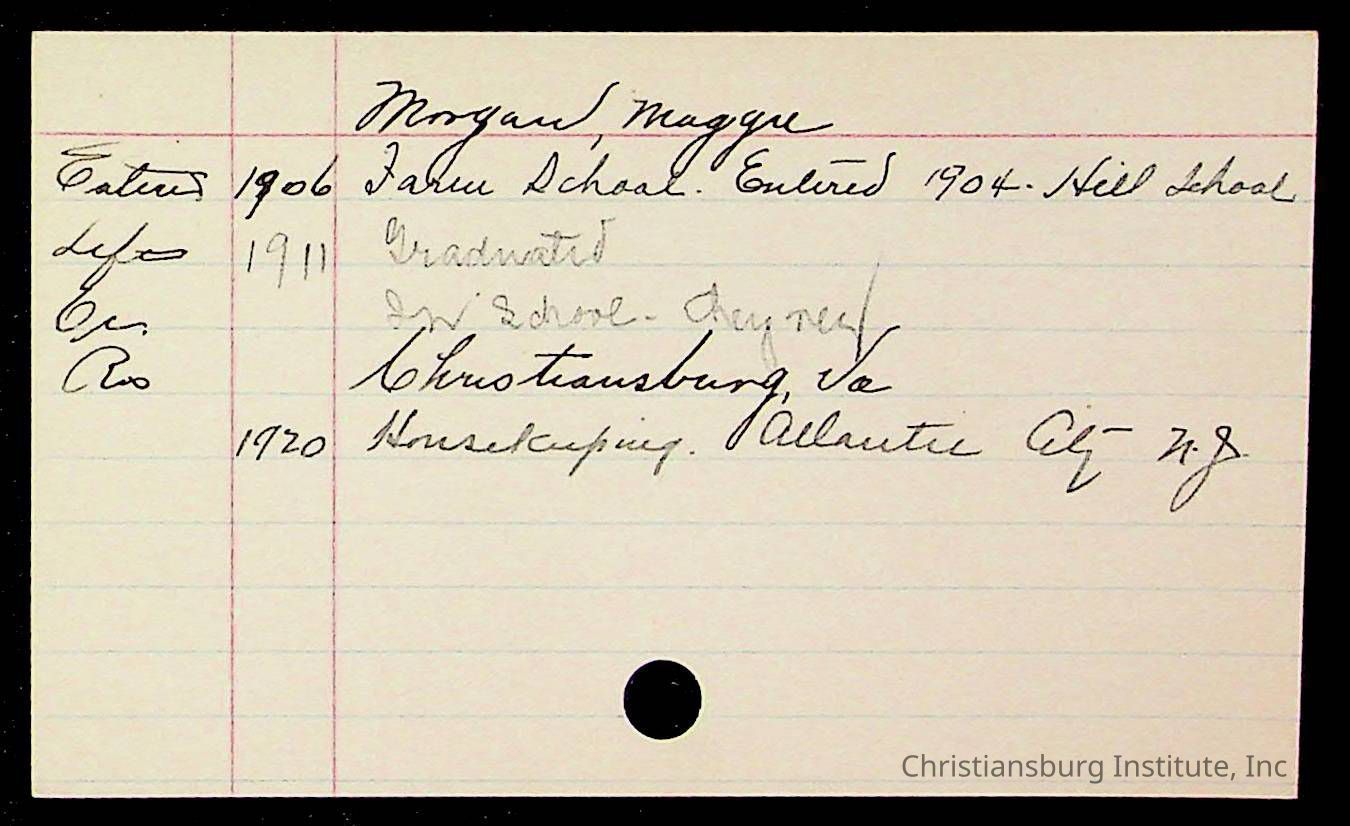 Morgan, Maggie
Entered 1906 Farm School. Entered 1904. Hill School
Left 1911 Graduated
Oc. In School - Cheyney
Res Christiansburg, Va
1920 Housekeeping. Atlantic City N.J.
Christiansburg Institute, Inc